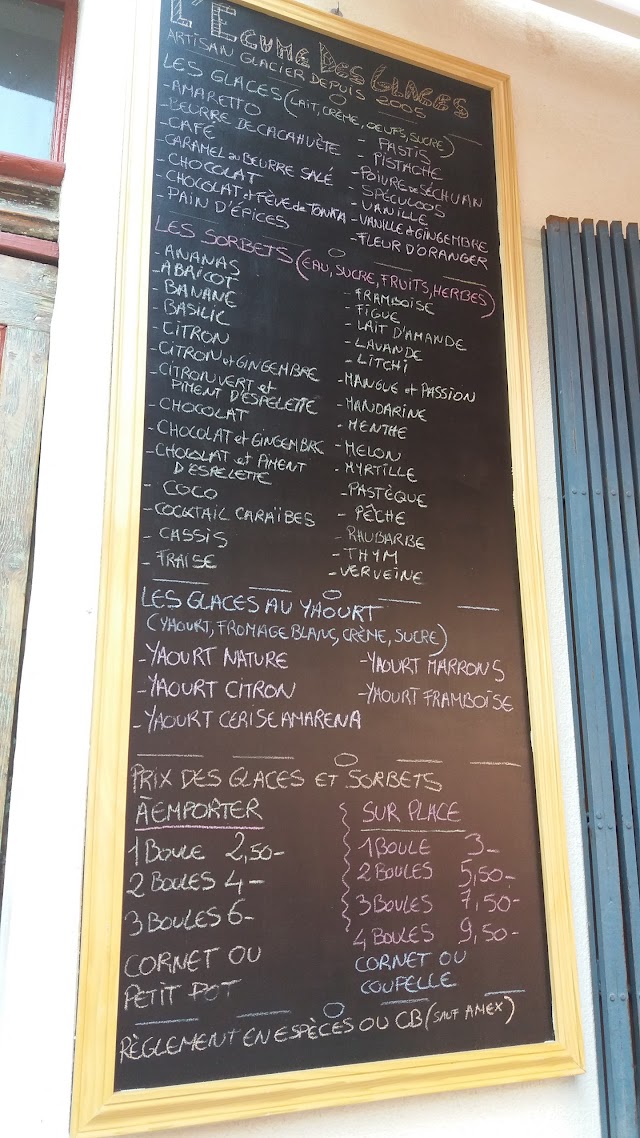 L'Ecume Des Glaces
ARTISAN GLACIER DEPUIS 2005
LES GLACES (LAIT, CRÈME, OEUFS, SUCRE)
- AMARETTO
- BEURRE DE CACAHUÈTE
- CAFÉ
- CARAMEL au BEURRE SALÉ
- CHOCOLAT
- CHOCOLAT et FÈVE de TONKA
- PAIN D'ÉPICES
- PASTIS
- PISTACHE
- POIVRE de SÉCHUAN
- SPÉCULOOS
- VANILLE
- VANILLE et GINGEMBRE
- FLEUR D'ORANGER
LES SORBETS (EAU, SUCRE, FRUITS, HERBES)
- ANANAS
- ABRICOT
- BANANE
- BASILIC
- CITRON
- CITRON et GINGEMBRE
- CITRON VERT et
PIMENT D'ESPELETTE
- CHOCOLAT
- CHOCOLAT et GINGEMBRE
- CHOCOLAT et PIMENT
D'ESPELETTE
- COCO
- COCKTAIL CARAÏBES
- CASSIS
- FRAISE
- FRAMBOISE
- FIGUE
- LAIT D'AMANDE
- LAVANDE
- LITCHI
- MANGUE et PASSION
- MANDARINE
- MENTHE
- MELON
- MYRTILLE
- PASTÈQUE
- PÊCHE
- RHUBARBE
- THYM
- VERVEINE
LES GLACES AU YAOURT
(YAOURT, FROMAGE BLANC, CRÈME, SUCRE)
- YAOURT NATURE
- YAOURT CITRON
- YAOURT CERISE AMARENA
- YAOURT MARRONS
- YAOURT FRAMBOISE
PRIX DES GLACES ET SORBETS
À EMPORTER
1 BOULE 2,50-
2 BOULES 4-
3 BOULES 6-
CORNET OU
PETIT POT
SUR PLACE
1 BOULE 3-
2 BOULES 5,50-
3 BOULES 7,50-
4 BOULES 9,50-
CORNET OU
COUPELLE
RÈGLEMENT EN ESPÈCES OU CB (SAUF AMEX)